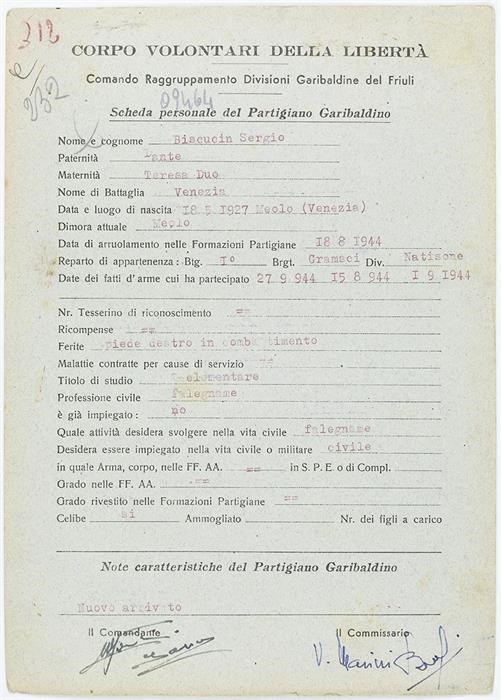 312
232
CORPO VOLONTARI DELLA LIBERTÀ
Comando Raggruppamento Divisioni Garibaldine del Friuli
09464
Scheda personale del Partigiano Garibaldino
Nome e cognome Biscucin Sergio
Paternità Dante
Maternità Teresa Duo
Nome di Battaglia Venezia
Data e luogo di nascita 18 5 1927 Meolo (Venezia)
Dimora attuale Meolo
Data di arruolamento nelle Formazioni Partigiane 18 8 1944
Reparto di appartenenza: Btg. I° Brgt. Gramsci Div. Natisone
Date dei fatti d'arme cui ha partecipato 27 9 944 15 8 944 I 9 1944
Nr. Tesserino di riconoscimento ==
Ricompense ==
Ferite piede destro in combattimento
Malattie contratte per cause di servizio ==
Titolo di studio elementare
Professione civile falegname
è già impiegato: no
Quale attività desidera svolgere nella vita civile falegname
Desidera essere impiegato nella vita civile o militare civile
in quale Arma, corpo, nelle FF. AA. == in S. P. E. o di Compl.
Grado nelle FF. AA. ==
Grado rivestito nelle Formazioni Partigiane ==
Celibe si Ammogliato Nr. dei figli a carico
Note caratteristiche del Partigiano Garibaldino
Nuovo arrivato
Il Comandante Il Commissario
V. Marini